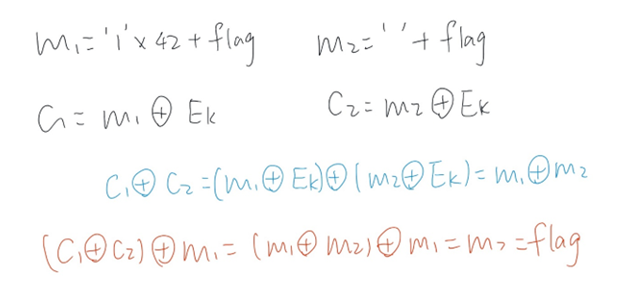 m₁='1'x42+flag m₂=''+flag
C₁=m₁⊕Ek C₂=m₂⊕Ek
C₁⊕C₂=(m₁⊕Ek)⊕(m₂⊕Ek)=m₁⊕m₂
(C₁⊕C₂)⊕m₁=(m₁⊕m₂)⊕m₁=m₂=flag